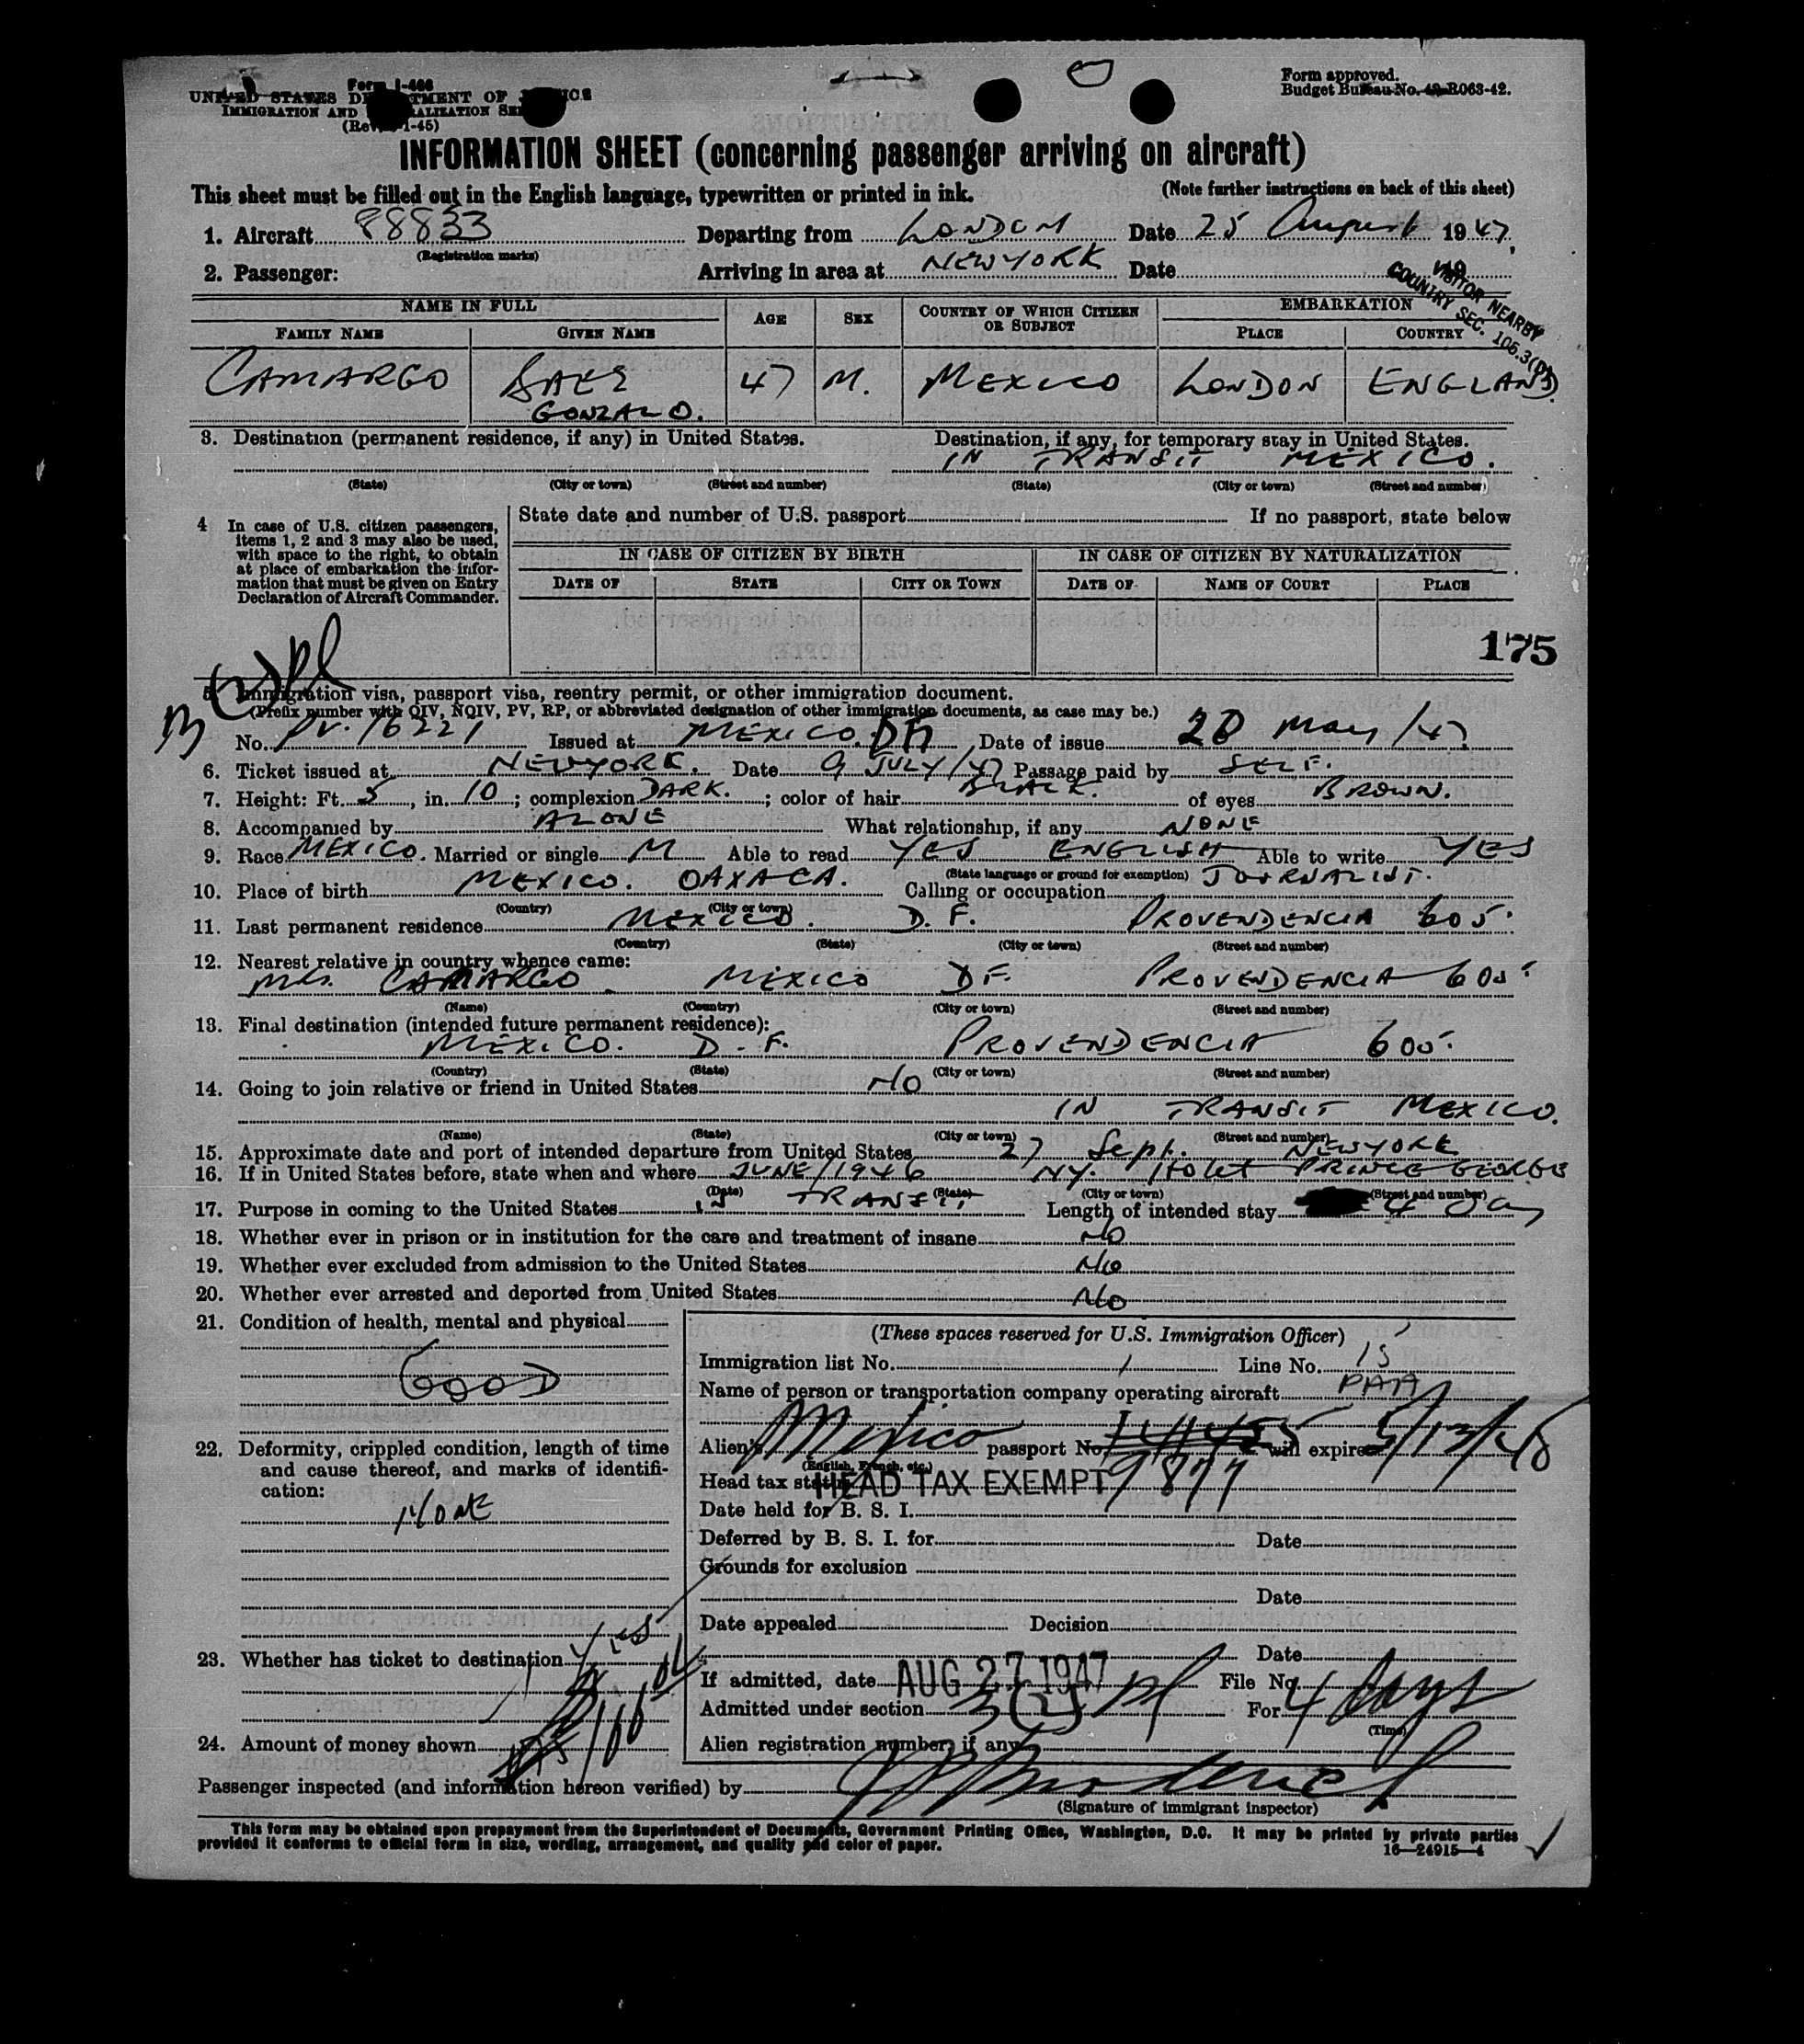 Form I-466
UNITED STATES DEPARTMENT OF JUSTICE
IMMIGRATION AND NATURALIZATION SER
(Rev. 1-45)
Form approved.
Budget Bureau No. 43-R063-42.
INFORMATION SHEET (concerning passenger arriving on aircraft)
This sheet must be filled out in the English language, typewritten or printed in ink. (Note further instructions on back of this sheet)
1. Aircraft 88833 Departing from LONDON Date 25 August 1947
(Registration marks)
2. Passenger: Arriving in area at NEW YORK Date 19
VISITOR NEARBY
COUNTRY SEC. 105.3(D)
NAME IN FULL AGE SEX COUNTRY OF WHICH CITIZEN OR SUBJECT EMBARKATION
FAMILY NAME GIVEN NAME PLACE COUNTRY
CAMARGO GONZALO. 47 M. MEXICO LONDON ENGLAND.
3. Destination (permanent residence, if any) in United States. Destination, if any, for temporary stay in United States.
IN TRANSIT MEXICO.
(State) (City or town) (Street and number) (State) (City or town) (Street and number)
4 In case of U.S. citizen passengers, items 1, 2 and 3 may also be used, with space to the right, to obtain at place of embarkation the information that must be given on Entry Declaration of Aircraft Commander.
State date and number of U.S. passport If no passport, state below
IN CASE OF CITIZEN BY BIRTH IN CASE OF CITIZEN BY NATURALIZATION
DATE OF STATE CITY OR TOWN DATE OF NAME OF COURT PLACE
175
5. Immigration visa, passport visa, reentry permit, or other immigration document.
(Prefix number with QIV, NQIV, PV, RP, or abbreviated designation of other immigration documents, as case may be.)
No. PV. 16221 Issued at MEXICO. Date of issue 20 May /47.
6. Ticket issued at NEW YORK. Date 9 JULY/47 Passage paid by SELF.
7. Height: Ft. 5, in. 10; complexion DARK.; color of hair BLACK. of eyes BROWN.
8. Accompanied by ALONE What relationship, if any NONE
9. Race MEXICO. Married or single M Able to read YES ENGLISH Able to write YES
(State language or ground for exemption)
10. Place of birth MEXICO. OAXACA. Calling or occupation JOURNALIST.
(Country) (City or town)
11. Last permanent residence MEXICO. D. F. PROVENDENCIA 605.
(Country) (State) (City or town) (Street and number)
12. Nearest relative in country whence came:
Mrs. CAMARGO. MEXICO DF. PROVENDENCIA 605.
(Name) (Country) (City or town) (Street and number)
13. Final destination (intended future permanent residence):
MEXICO. D. F. PROVENDENCIA 605.
(Country) (State) (City or town) (Street and number)
14. Going to join relative or friend in United States NO
IN TRANSIT MEXICO.
(Name) (State) (City or town) (Street and number)
15. Approximate date and port of intended departure from United States 27 Sept. NEW YORK
16. If in United States before, state when and where JUNE/1946 NY. Hotel PRINCE GEORGE
(Date) (State) (City or town) (Street and number)
17. Purpose in coming to the United States IN TRANSIT Length of intended stay 4 day
18. Whether ever in prison or in institution for the care and treatment of insane No
19. Whether ever excluded from admission to the United States No
20. Whether ever arrested and deported from United States No
21. Condition of health, mental and physical
GOOD
22. Deformity, crippled condition, length of time and cause thereof, and marks of identification:
NONE
23. Whether has ticket to destination Yes
24. Amount of money shown
(These spaces reserved for U.S. Immigration Officer)
Immigration list No. 1 Line No. 15
Name of person or transportation company operating aircraft PAA
Alien's Mexico passport No. will expire 5/13/48
(English, French, etc.)
Head tax status HEAD TAX EXEMPT 9877
Date held for B. S. I.
Deferred by B. S. I. for Date
Grounds for exclusion
Date
Date appealed Decision
Date
If admitted, date AUG 27 1947 File No.
Admitted under section 3(2) For 4 days
(Time)
Alien registration number, if any
Passenger inspected (and information hereon verified) by
(Signature of immigrant inspector)
This form may be obtained upon prepayment from the Superintendent of Documents, Government Printing Office, Washington, D.C. It may be printed by private parties
provided it conforms to official form in size, wording, arrangement, and quality and color of paper.
16—24915-4